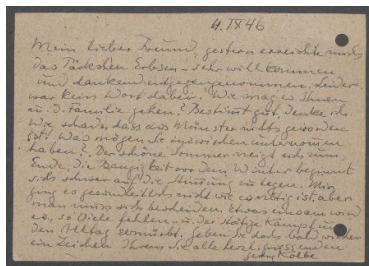 4.IX 46
Mein lieber Freund, gestern erreichte mich
das Päckchen Erbsen – sehr willkommen
und dankend entgegengenommen, leider
war kein Wort dabei. Wie mag es Ihnen
u. d. Familie gehen? Bestimmt gut, denke ich.
Wie schade, dass aus Münster nichts geworden
ist! Was mögen Sie inzwischen unternommen
haben? Der schöne Sommer neigt sich zum
Ende, die Bangigkeit vor dem Winter beginnt
sich schwer auf die Stimmung zu legen. Mir
ging es gesundheitlich nicht wie es nötig ist aber
man muss sich bescheiden. Etwas einsam wird
es, so Viele fehlen u. der stetige Kampf um
den Alltag ermüdet. Geben Sie doch bald wieder
ein Zeichen Ihrem Sie alle herzl. grüssenden
Georg Kolbe